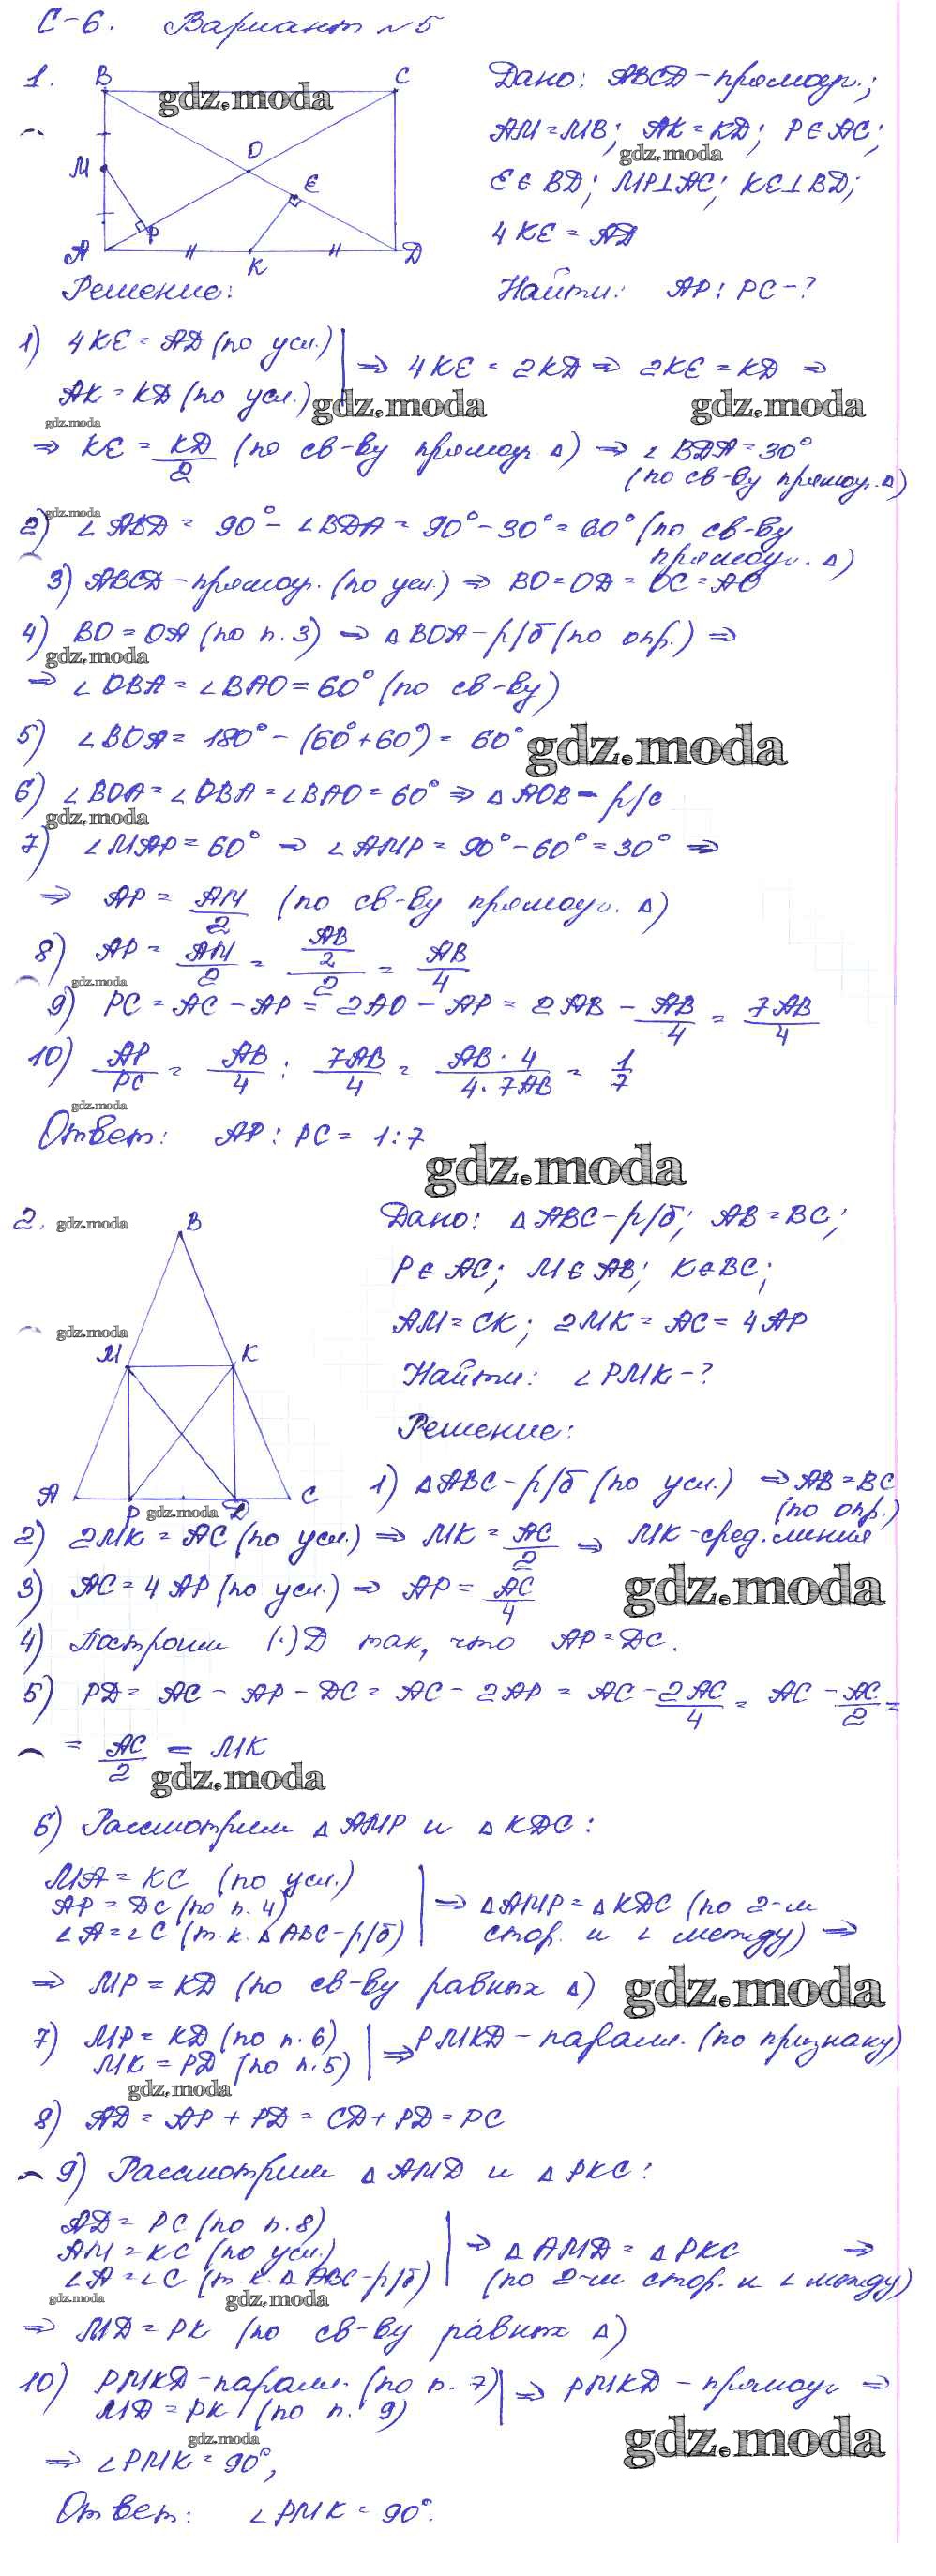 С-6. Вариант №5
1. B C
gdz.moda
Дано: ABCD - прямоуг.;
AM = MB; AK = KD; P ∈ AC;
gdz.moda
O
M E
E ∈ BD; MP⊥AC; KE⊥BD;
P
4KE = AD
A K D
Решение:
Найти: AP : PC - ?
1) 4KE = AD (по усл.) | ⇒ 4KE = 2KD ⇒ 2KE = KD ⇒
AK = KD (по усл.)
gdz.moda gdz.moda
gdz.moda
⇒ KE = KD/2 (по св-ву прямоуг. Δ) ⇒ ∠BDA = 30°
(по св-ву прямоуг. Δ)
gdz.moda
2) ∠ABD = 90° - ∠BDA = 90° - 30° = 60° (по св-ву
прямоуг. Δ)
3) ABCD - прямоуг. (по усл.) ⇒ BO = OD = OC = AO
4) BO = OA (по п. 3) ⇒ ΔBOA - р/б (по опр.) ⇒
gdz.moda
⇒ ∠OBA = ∠BAO = 60° (по св-ву)
5) ∠BOA = 180° - (60° + 60°) = 60°
gdz.moda
6) ∠BOA = ∠OBA = ∠BAO = 60° ⇒ ΔAOB - р/с
gdz.moda
7) ∠MAP = 60° ⇒ ∠AMP = 90° - 60° = 30° ⇒
⇒ AP = AM/2 (по св-ву прямоуг. Δ)
8) AP = AM/2 = (AB/2)/2 = AB/4
gdz.moda
9) PC = AC - AP = 2AO - AP = 2AB - AB/4 = 7AB/4
10) AP/PC = AB/4 : 7AB/4 = AB · 4/4 · 7AB = 1/7
gdz.moda
Ответ: AP : PC = 1 : 7
gdz.moda
2. gdz.moda B
Дано: ΔABC - р/б; AB = BC;
P ∈ AC; M ∈ AB; K ∈ BC;
gdz.moda
AM = CK; 2MK = AC = 4AP
M K
Найти: ∠PMK - ?
Решение:
A P gdz.moda D C
1) ΔABC - р/б (по усл.) ⇒ AB = BC
(по опр.)
2) 2MK = AC (по усл.) ⇒ MK = AC/2 ⇒ MK - сред. линия
3) AC = 4AP (по усл.) ⇒ AP = AC/4
gdz.moda
4) Построим (·) D так, что AP = DC.
5) PD = AC - AP - DC = AC - 2AP = AC - 2AC/4 = AC - AC/2 =
= AC/2 = MK
gdz.moda
6) Рассмотрим ΔAMP и ΔKDC:
MA = KC (по усл.)
AP = DC (по п. 4) | ⇒ ΔAMP = ΔKDC (по 2-м
∠A = ∠C (т.к. ΔABC - р/б) стор. и ∠ между) ⇒
⇒ MP = KD (по св-ву равных Δ)
gdz.moda
7) MP = KD (по п. 6) | ⇒ PMKD - парал. (по признаку)
MK = PD (по п. 5)
gdz.moda
8) AD = AP + PD = CD + PD = PC
9) Рассмотрим ΔAMD и ΔPKC:
AD = PC (по п. 8)
AM = KC (по усл.) | ⇒ ΔAMD = ΔPKC ⇒
∠A = ∠C (т.к. ΔABC - р/б) (по 2-м стор. и ∠ между)
gdz.moda gdz.moda
⇒ MD = PK (по св-ву равных Δ)
10) PMKD - парал. (по п. 7) | ⇒ PMKD - прямоуг ⇒
MD = PK (по п. 9)
gdz.moda gdz.moda
⇒ ∠PMK = 90°,
Ответ: ∠PMK = 90°.